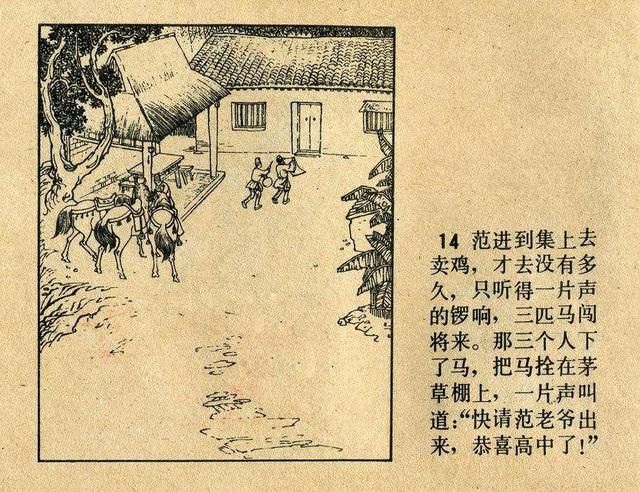 14 范进到集上去
卖鸡，才去没有多
久，只听得一片声
的锣响，三匹马闯
将来。那三个人下
了马，把马拴在茅
草棚上，一片声叫
道：“快请范老爷出
来，恭喜高中了！”